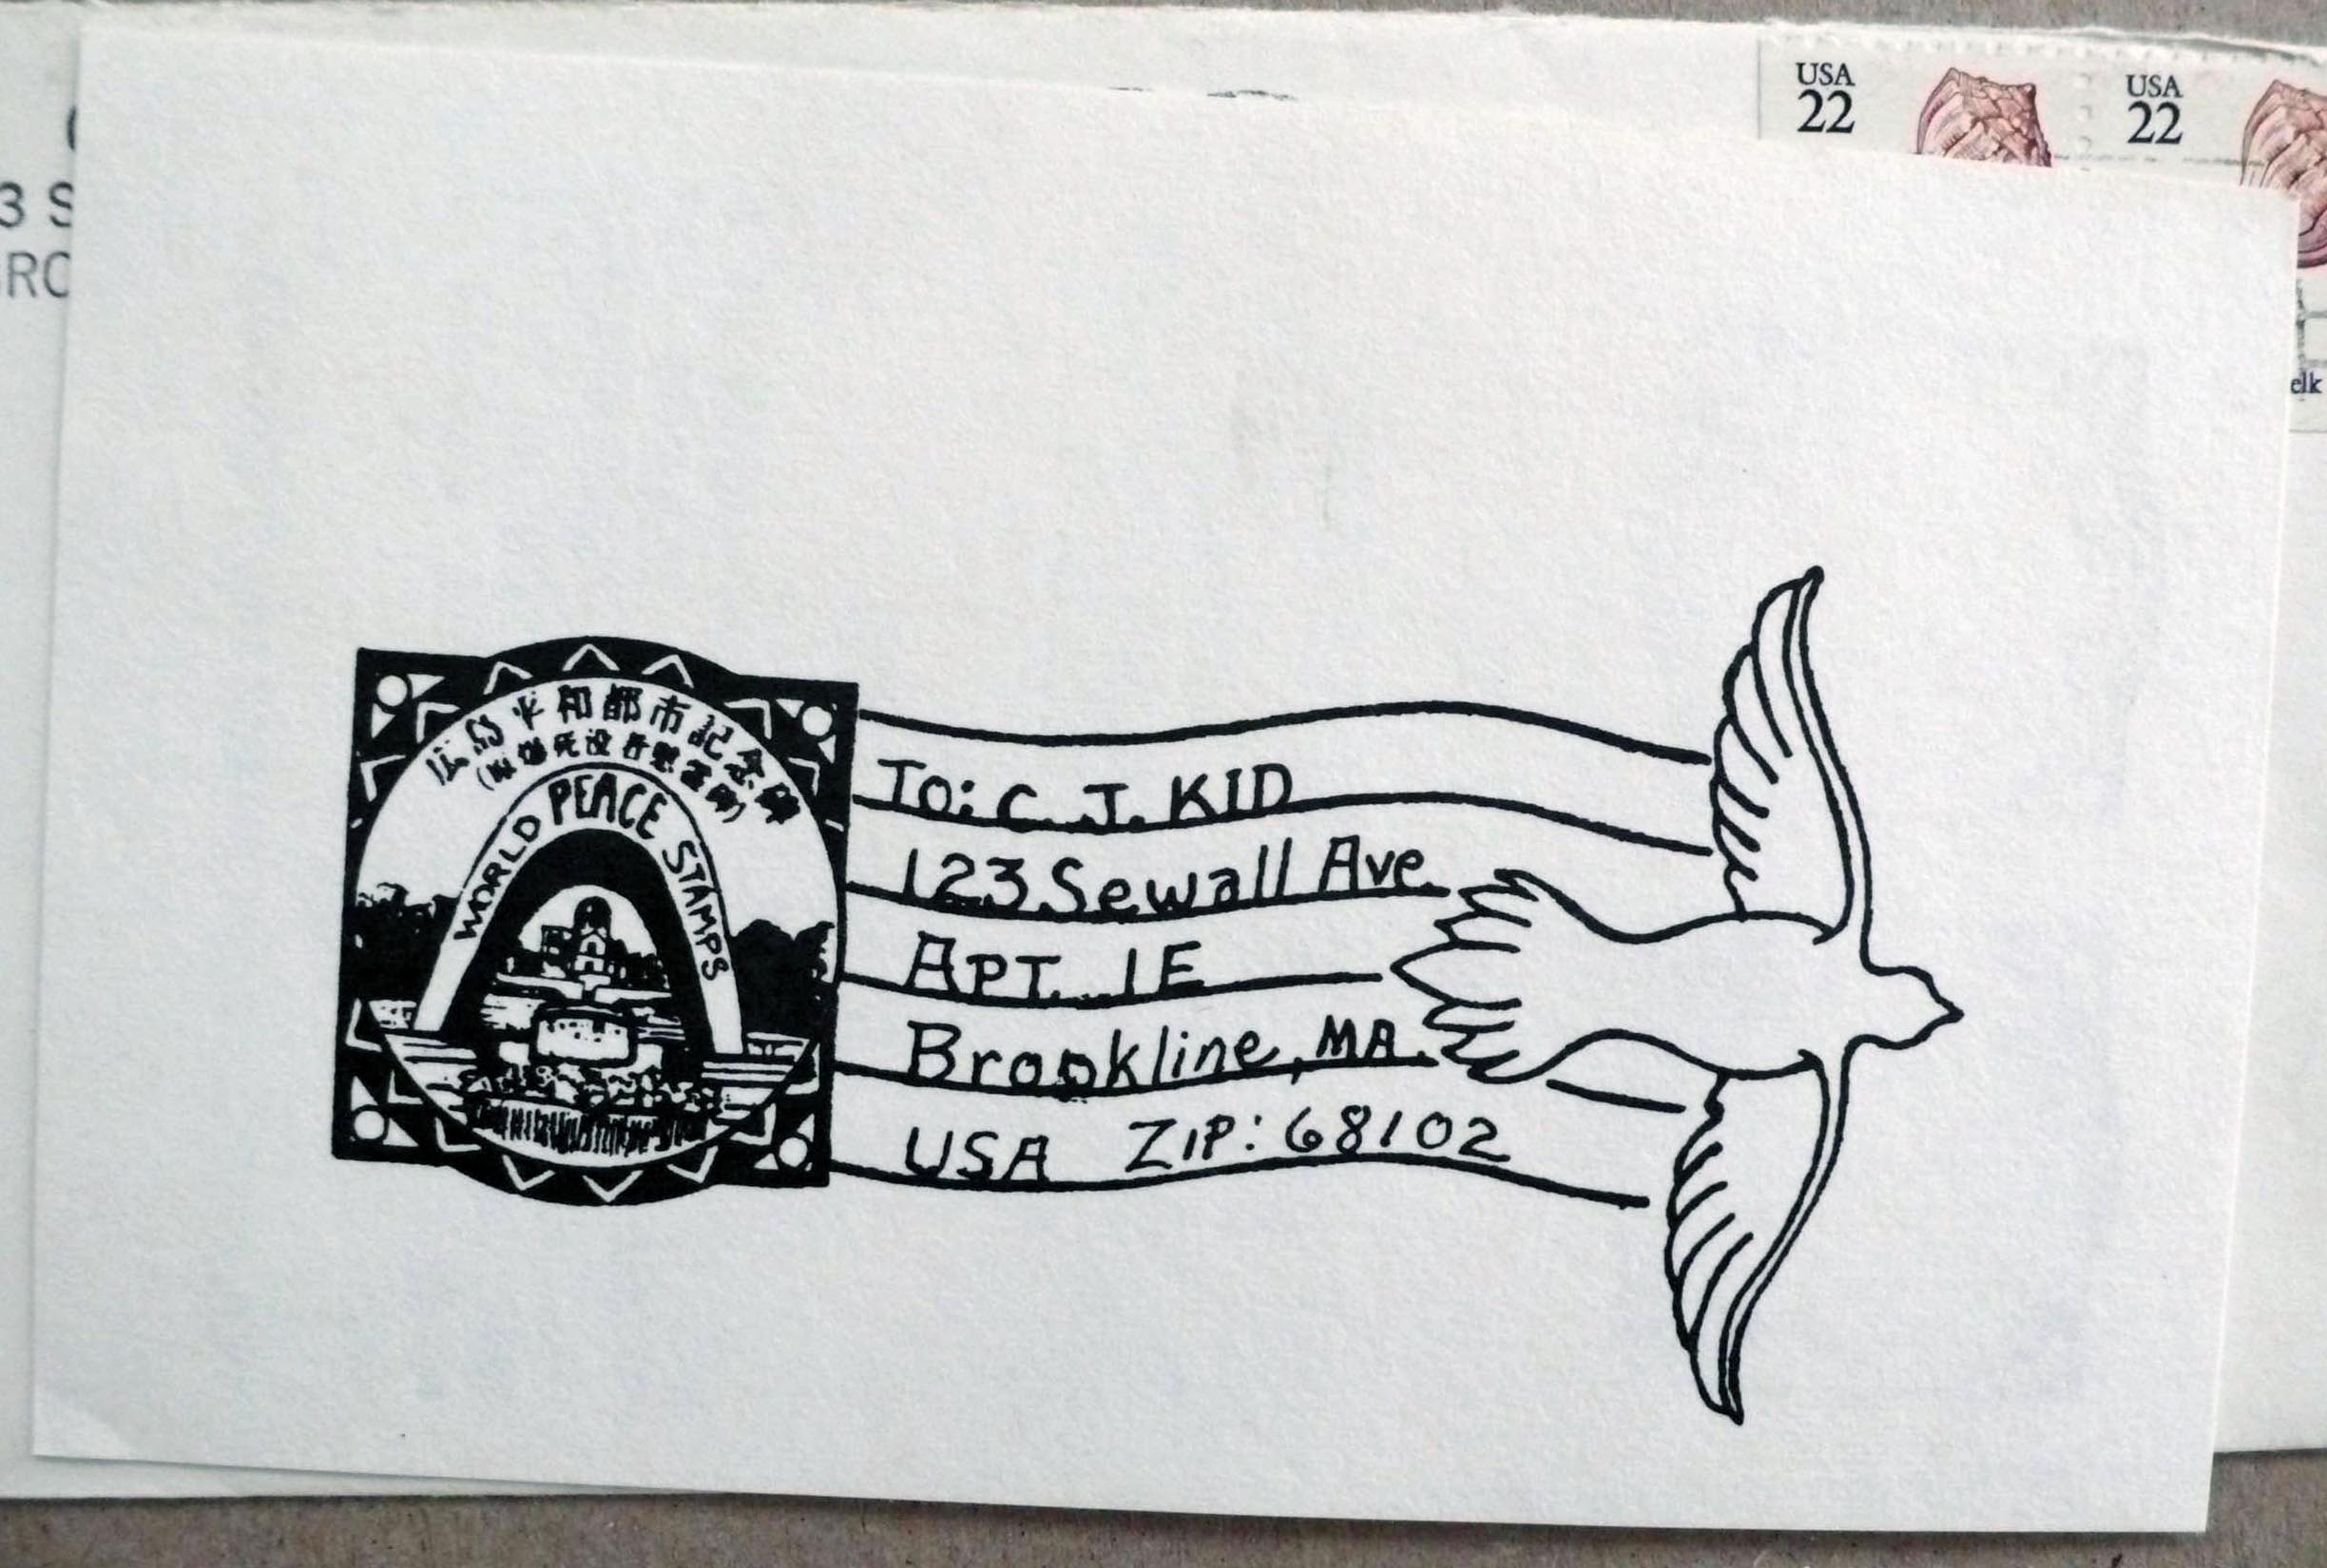 USA
22
USA
22
3 S
RO
elk
広島平和都市記念碑
(原爆死没者慰霊碑)
WORLD PEACE STAMPS
TO: C. J. KID
123 Sewall Ave.
APT. 1E
Brookline, MA.
USA ZIP: 68102